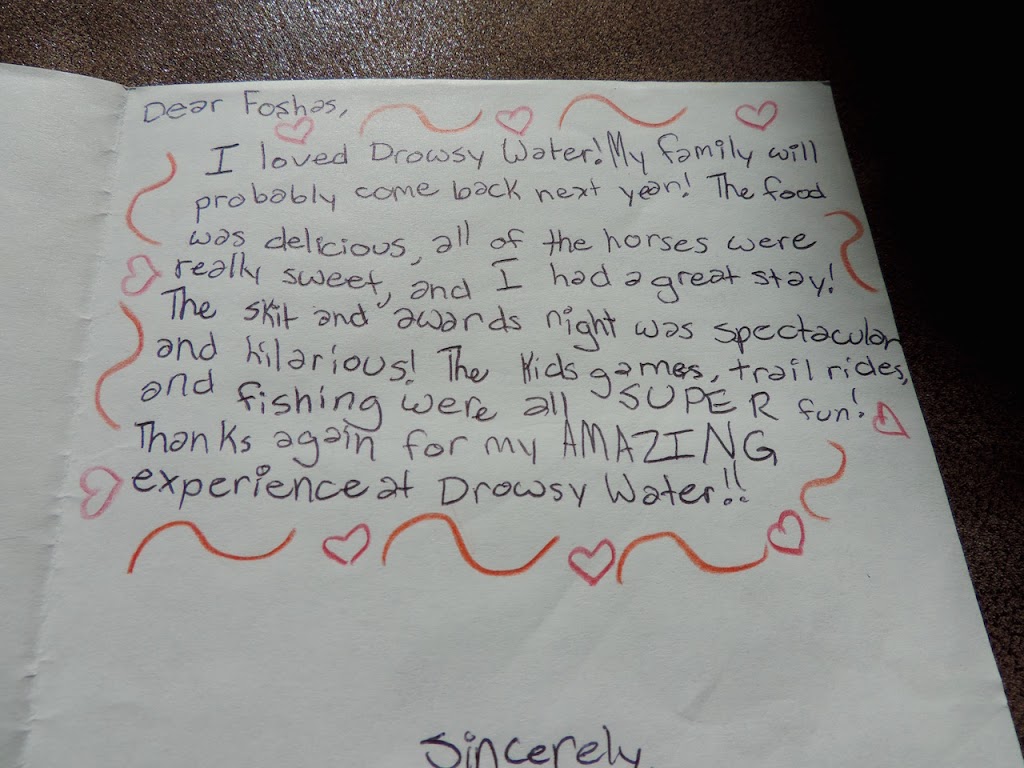 Dear Foshas,
I loved Drowsy Water! My family will
probably come back next year! The food
was delicious, all of the horses were
really sweet, and I had a great stay!
The skit and awards night was spectacular
and hilarious! The kids games, trail rides,
and fishing were all SUPER fun!
Thanks again for my AMAZING
experience at Drowsy Water!!
Sincerely,